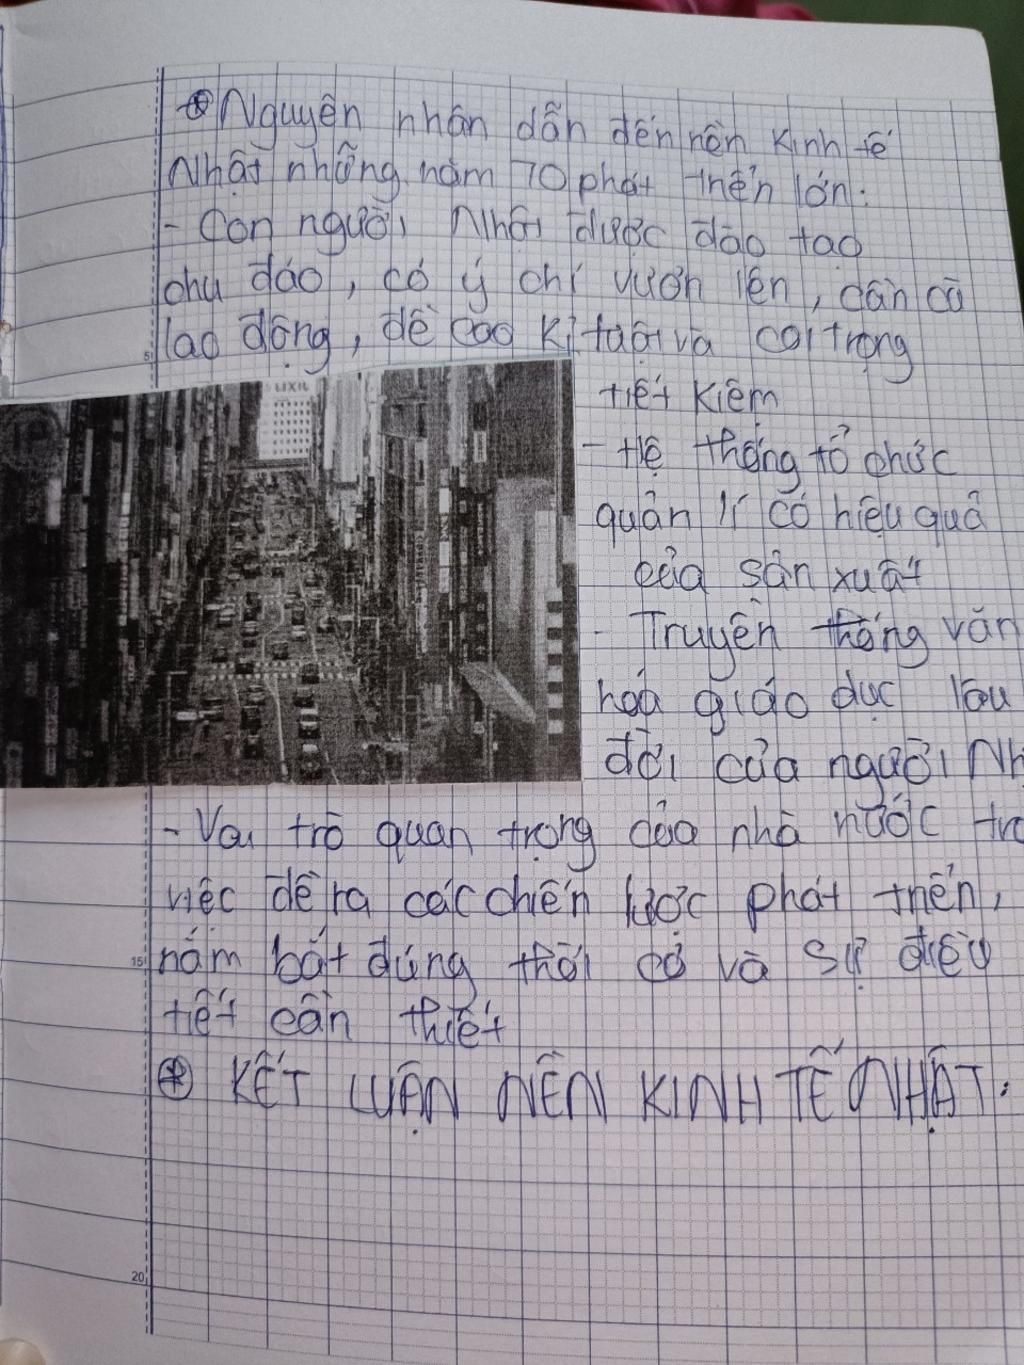 ⊛ Nguyên nhân dẫn đến nền kinh tế
Nhật những năm 70 phát triển lớn:
- Con người Nhật được đào tạo
chu đáo, có ý chí vươn lên, cần cù
lao động, đề cao kỉ luật và coi trọng
LIXIL
tiết kiệm
- Hệ thống tổ chức
quản lí có hiệu quả
của sản xuất
- Truyền thống văn
hoá giáo dục lâu
đời của người Nh
- Vai trò quan trọng của nhà nước tro
việc đề ra các chiến lược phát triển,
nắm bắt đúng thời cơ và sự điều
tiết cần thiết
⊛ KẾT LUẬN NỀN KINH TẾ NHẬT:
15
20